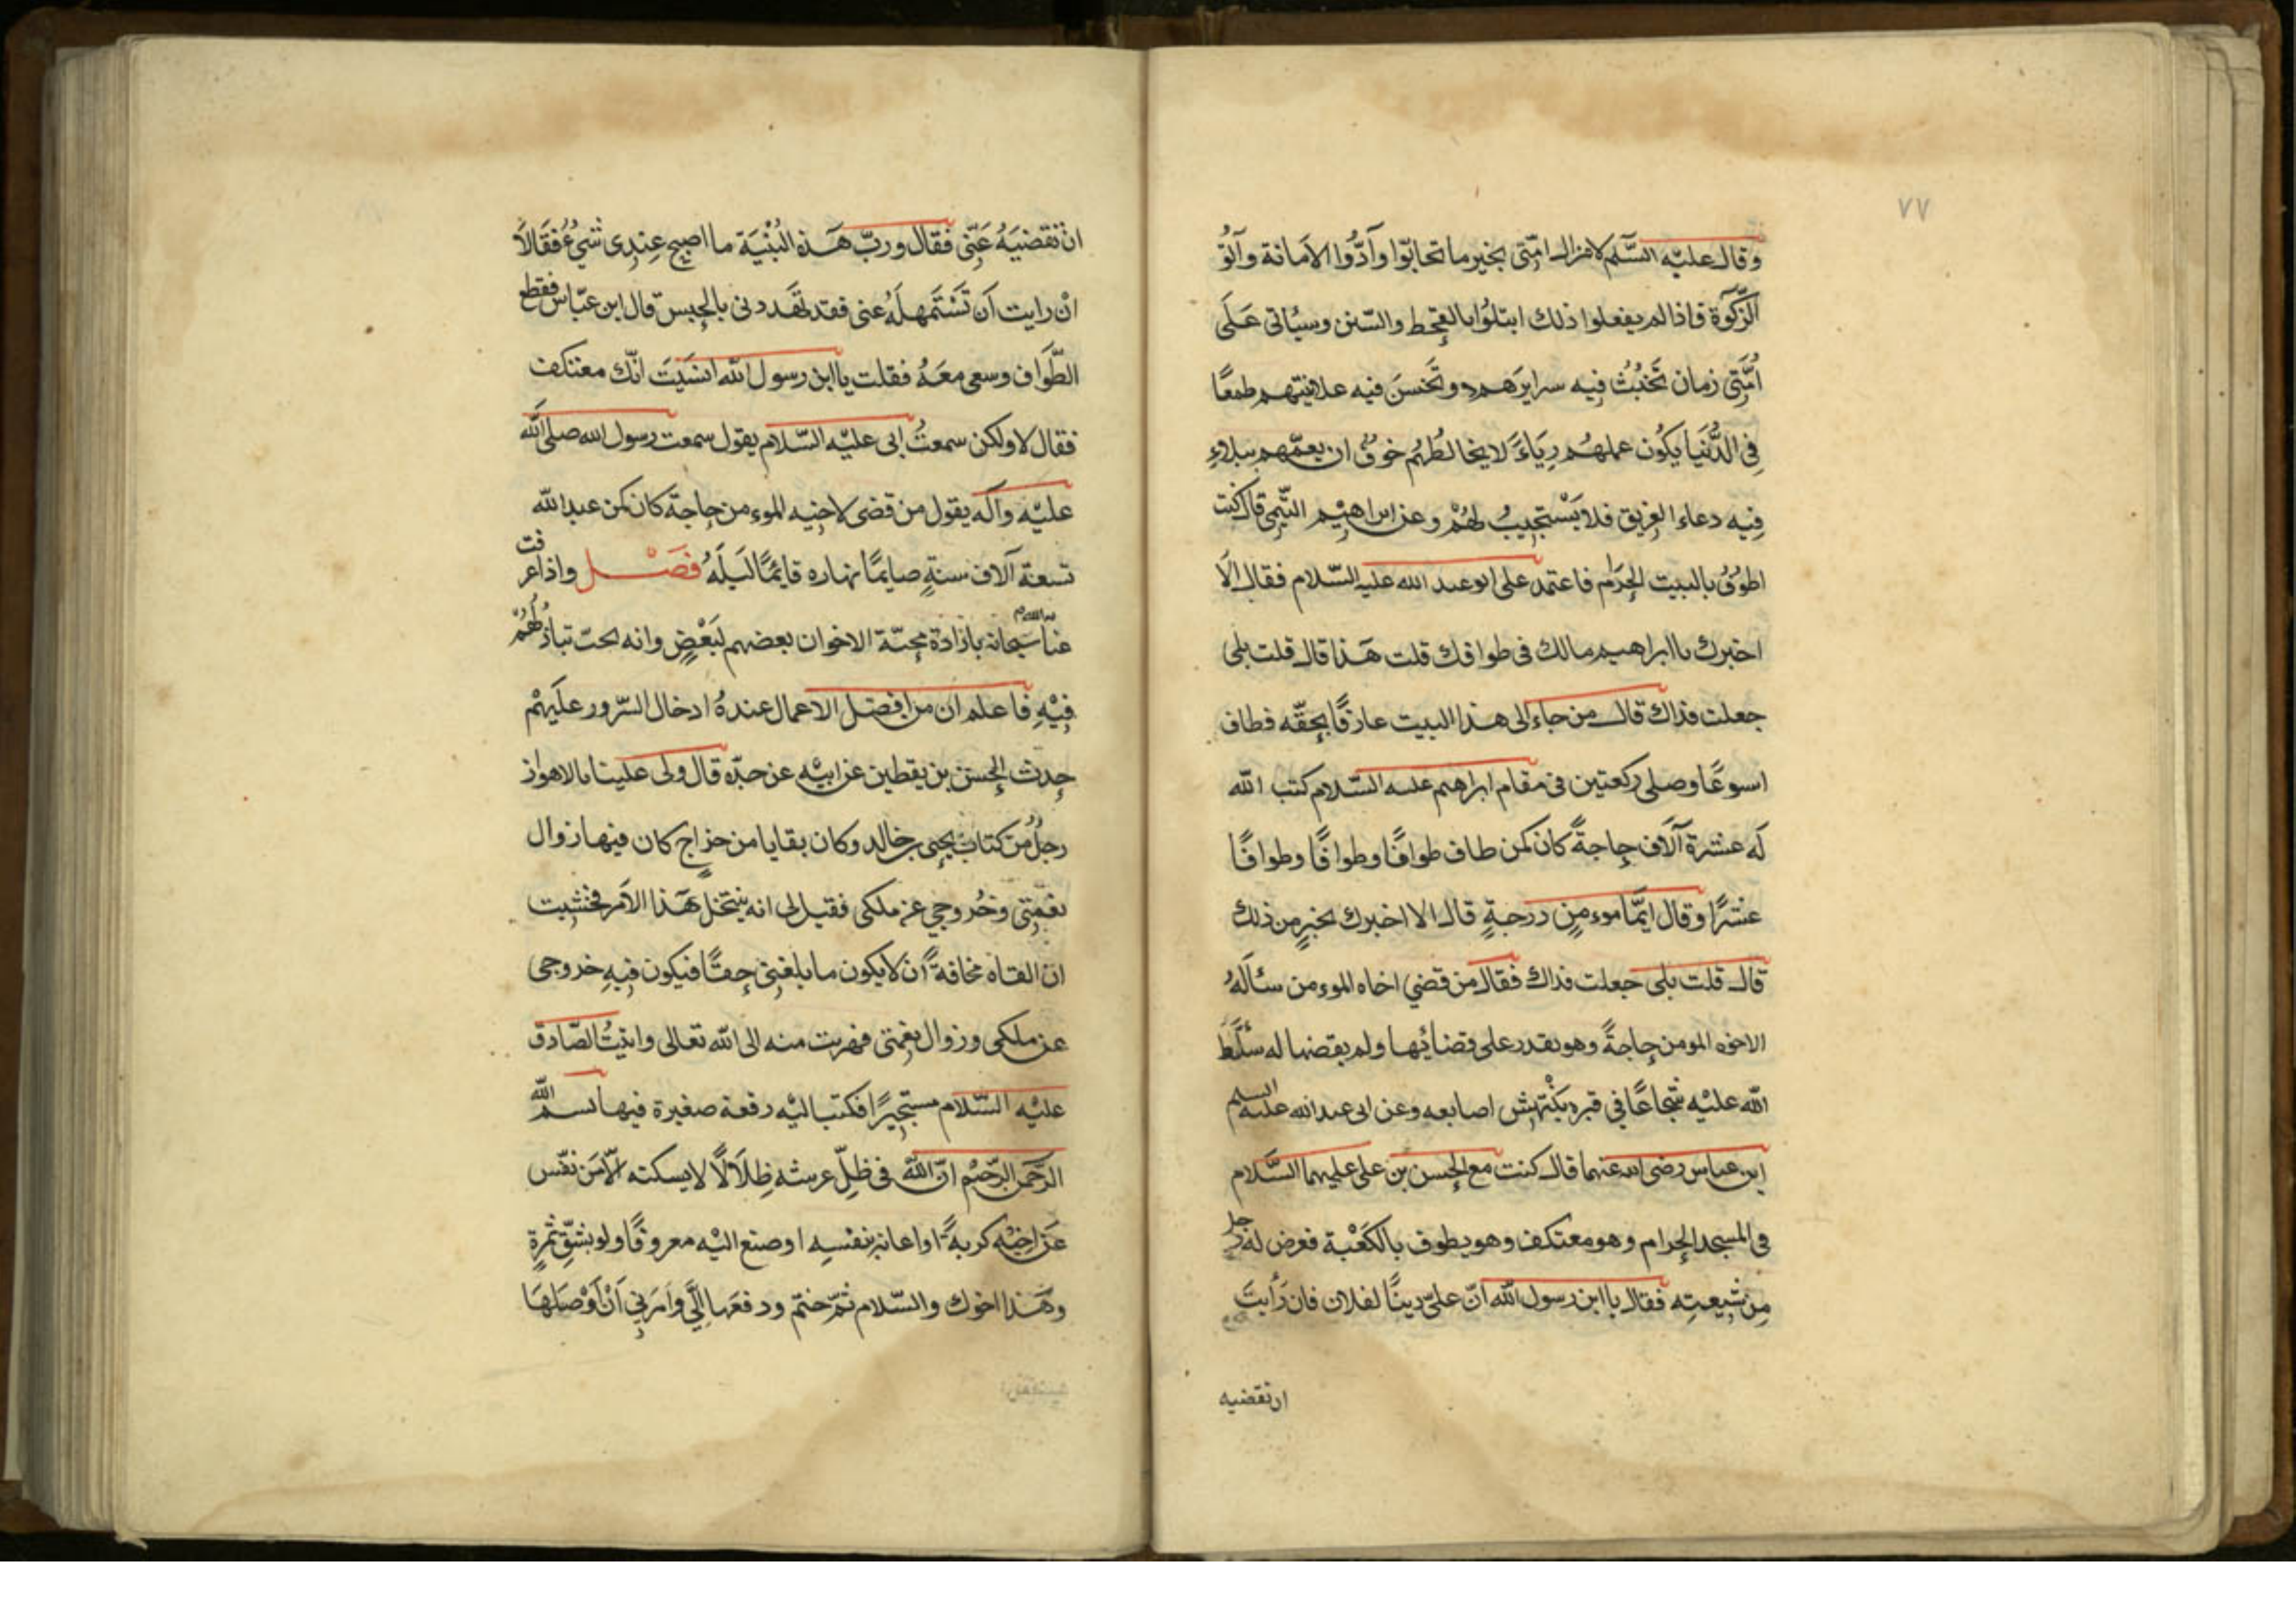 ٧٧
وقال عليه السّلم لا تزال امّتى بخير ما تحابّوا وأدّوا الامانة وآتوُ
الزّكوة فاذا لم يفعلوا ذلك ابتلوُا بالقحط والسّنن وسيأتى عَلَى
اُمَّتى زمان تَخبُثُ فيه سرايرَهم وتَحْسنَ فيه علانيتهم طمعًا
فى الدُّنيَا يكُون عملهُم رِيَاءً لا يخالطُهُم خوفٌ ان يعمّهم ببلاءٍ
فيه دعاء الغريق فلا يَسْتجيبُ لهُمْ وعن ابراهيم التّيمى قال كنت
اطوُفُ بالبيت الحرَام فاعتمد على ابو عبد الله عليه السّلام فقال الَا
اخبرك يا ابراهيم مالك فى طوافك قلت هَذا قال قلت بلى
جعلت فداك قال من جاء الى هذا البيت عارفًا بحقّه فطاف
اسبوعًا وصلى ركعتين فى مقام ابرهيم عليه السّلام كتب الله
لَه عشرة آلاَف حاجةً كان كمن طاف طوافًا وطوافًا وطوافًا
عشرًا وقال ايّما مومن درجةٍ قال الا اخبرك بخيرٍ من ذلك
قال قلت بلى جعلت فداك فقال من قضي اخاه المومن سئالَهُ
الاخوه المومن حاجةً وهو يقدر على قضائها ولم يقضها له سلّطَ
الله عليْه شجاعًا فى قبره ينْتهِش اصابعه وعن ابى عبد الله عليه السلم
ابن عباس رضى الله عنهما قال كنت مع الحسن بن على عليهما السَّلام
فى المسجد الحرام وهو معتكف وهو يطوف بالكَعْبة فعرض له رجل
مِن شيعتِه فقال يا ابن رسول الله انّ علىّ دينًا لفلان فان رَأيتَ
ان تقضيه
ان تقضيَهُ عَنّى فقال وربّ هَذه البُنْيَة ما اصبح عِندِى شيْءُ فقالاَ
انْ رايت اَن تَسْتَمهِلَهُ عنى فقد تهَددنى بالحبس قال ابن عبّاس فقطع
الطّوَاف وسعى معَهُ فقلت يا ابن رسول الله انسَيتَ انّك معتكف
فقال لا ولكن سمعتُ ابى عليْه السّلام يقول سمعت رسول الله صلى الله
عليْه وآله يقول من قضى لاخيه المومن حاجة كان كمن عبد الله
تسعة آلاف سنةٍ صايمًا نهاره قايمًا لَيلَهُ فَصْل واذا عرفت
عناية الله سبحانه بارادة محبّة الاخوان بعضهم لبَعْضٍ وانه يحب تباذُلُهُمْ
فيْهِ فاعلم ان من افضل الاعمال عندهُ ادخال السّرور عليْهمْ
حدث الحسن بن يقطين عن ابيْه عن جدّه قال ولى علينا بالاهواز
رجلٌ من كتاب يحيى بن خالد وكان بقايا من خراجٍ كان فيها زوال
نعمتى وخُروجى عن ملكى فقيل لى انه ينتحل هَذا الاَمر فخشيت
ان القاه مخافةً أن لا يكون ما بلغنى حقًّا فيكون فيه خروجى
عن ملكى وزوال نعمتى فهربت منه الى الله تعالى واتيتُ الصّادق
عليْه السّلام مستجيرًا فكتب اليْه رقعة صغيرة فيها بسم الله
الرّحمن الرّحيْم انّ اللهَ فى ظلّ عرشه ظِلاَلًا لا يسكنه الّا مَن نفّس
عَن اخيْه كربةً او اعانه بنفسه او صنع اليْه معروفًا ولو بشقّ تمرةٍ
وهَذا اخوك والسّلام ثمّ ختم ودفعَها اِلَىَّ واَمَرنِى اَنْ اُوْصِلهَا